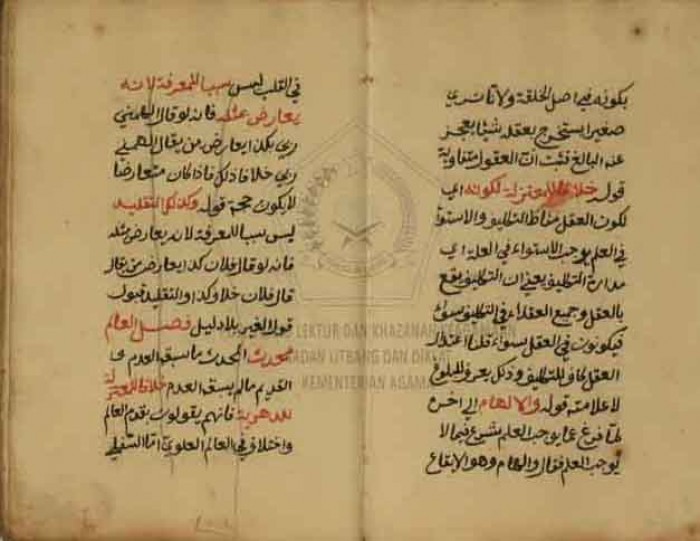 بكونه في اصل الخلقة ولانا نري
صغيرا استخرج بعقله شيئا يعجز
عنه البالغ فثبت ان العقول متفاوتة
قوله خلافا للمعتزلة لكونه اي
لكون العقل مناط التكليف والاستواء
في العلم يوجب الاستواء في العلة اي
مدارة التكليف يعني ان التكليف يقع
بالعقل وجميع العقلاء في التكليف سواء
فيكونون في العقل سواء قلنا اعتدار
العقل كاف للتكليف وذلك يعرف بالبلوغ
لا علامته قوله والالهام الي اخره
لما فرغ عما يوجب العلم بشيئ فيما لا
يوجب العلم فقال والهام وهو الايقاع
في القلب ليس سببا للمعرفة لانه
يعارض بمثله فانه لو قال الهمني
ربي بكذا يعارض من يقال الهمني
ربي خلافا ذلك فاذا كان متعارضا
لا يكون حجة قوله وكذلك التقليد
ليس سببا للمعرفة لانه يعارض بمثله
فانه لو قال فلان كذا يعارض من يقال
قال فلان خلاف كذا والتقليد قبول
قول الغير بلا دليل فصل العالم
محدث المحدث ما سبقه العدم و
القديم ما لم يسبقه العدم خلافا للمعتزلة
للدهرية فانهم يقولون بقدم العالم
واختلاف في العالم العلوي اما السفلي
LEKTUR DAN KHAZANAH KEAGAMAAN
BADAN LITBANG DAN DIKLAT
KEMENTERIAN AGAMA